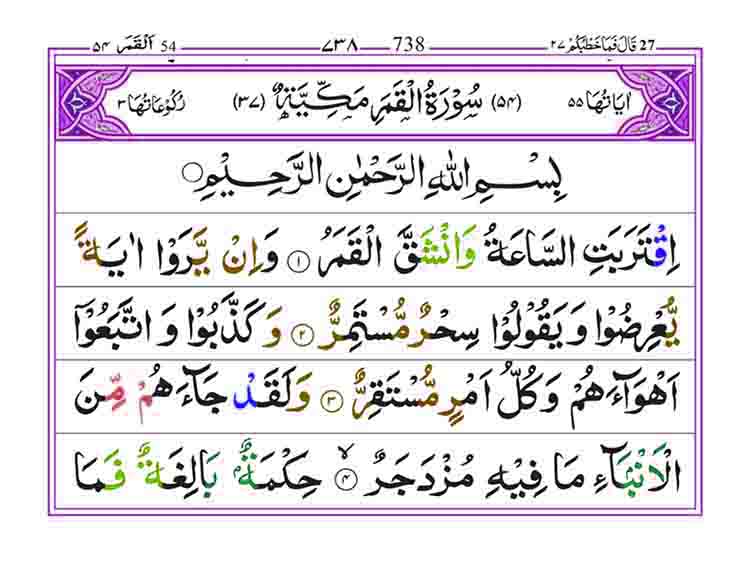 ٢٧ قَالَ فَمَا خَطْبُكُمْ 27 738 ٧٣٨ اَلْقَمَر ٥٤ 54
اٰيَاتُهَا ٥٥ (٥٤) سُوْرَةُ الْقَمَرِ مَكِّيَّةٌ (٣٧) رُكُوْعَاتُهَا ٣
بِسْمِ اللّٰهِ الرَّحْمٰنِ الرَّحِيْمِ
اِقْتَرَبَتِ السَّاعَةُ وَانْشَقَّ الْقَمَرُ ١ وَاِنْ يَّرَوْا اٰيَةً
يُّعْرِضُوْا وَيَقُوْلُوْا سِحْرٌ مُّسْتَمِرٌّ ٢ وَكَذَّبُوْا وَاتَّبَعُوْٓا
اَهْوَآءَهُمْ وَكُلُّ اَمْرٍ مُّسْتَقِرٌّ ٣ وَلَقَدْ جَآءَهُمْ مِّنَ
الْاَنْۢبَآءِ مَا فِيْهِ مُزْدَجَرٌ ٤ۙ حِكْمَةٌۢ بَالِغَةٌ فَمَا